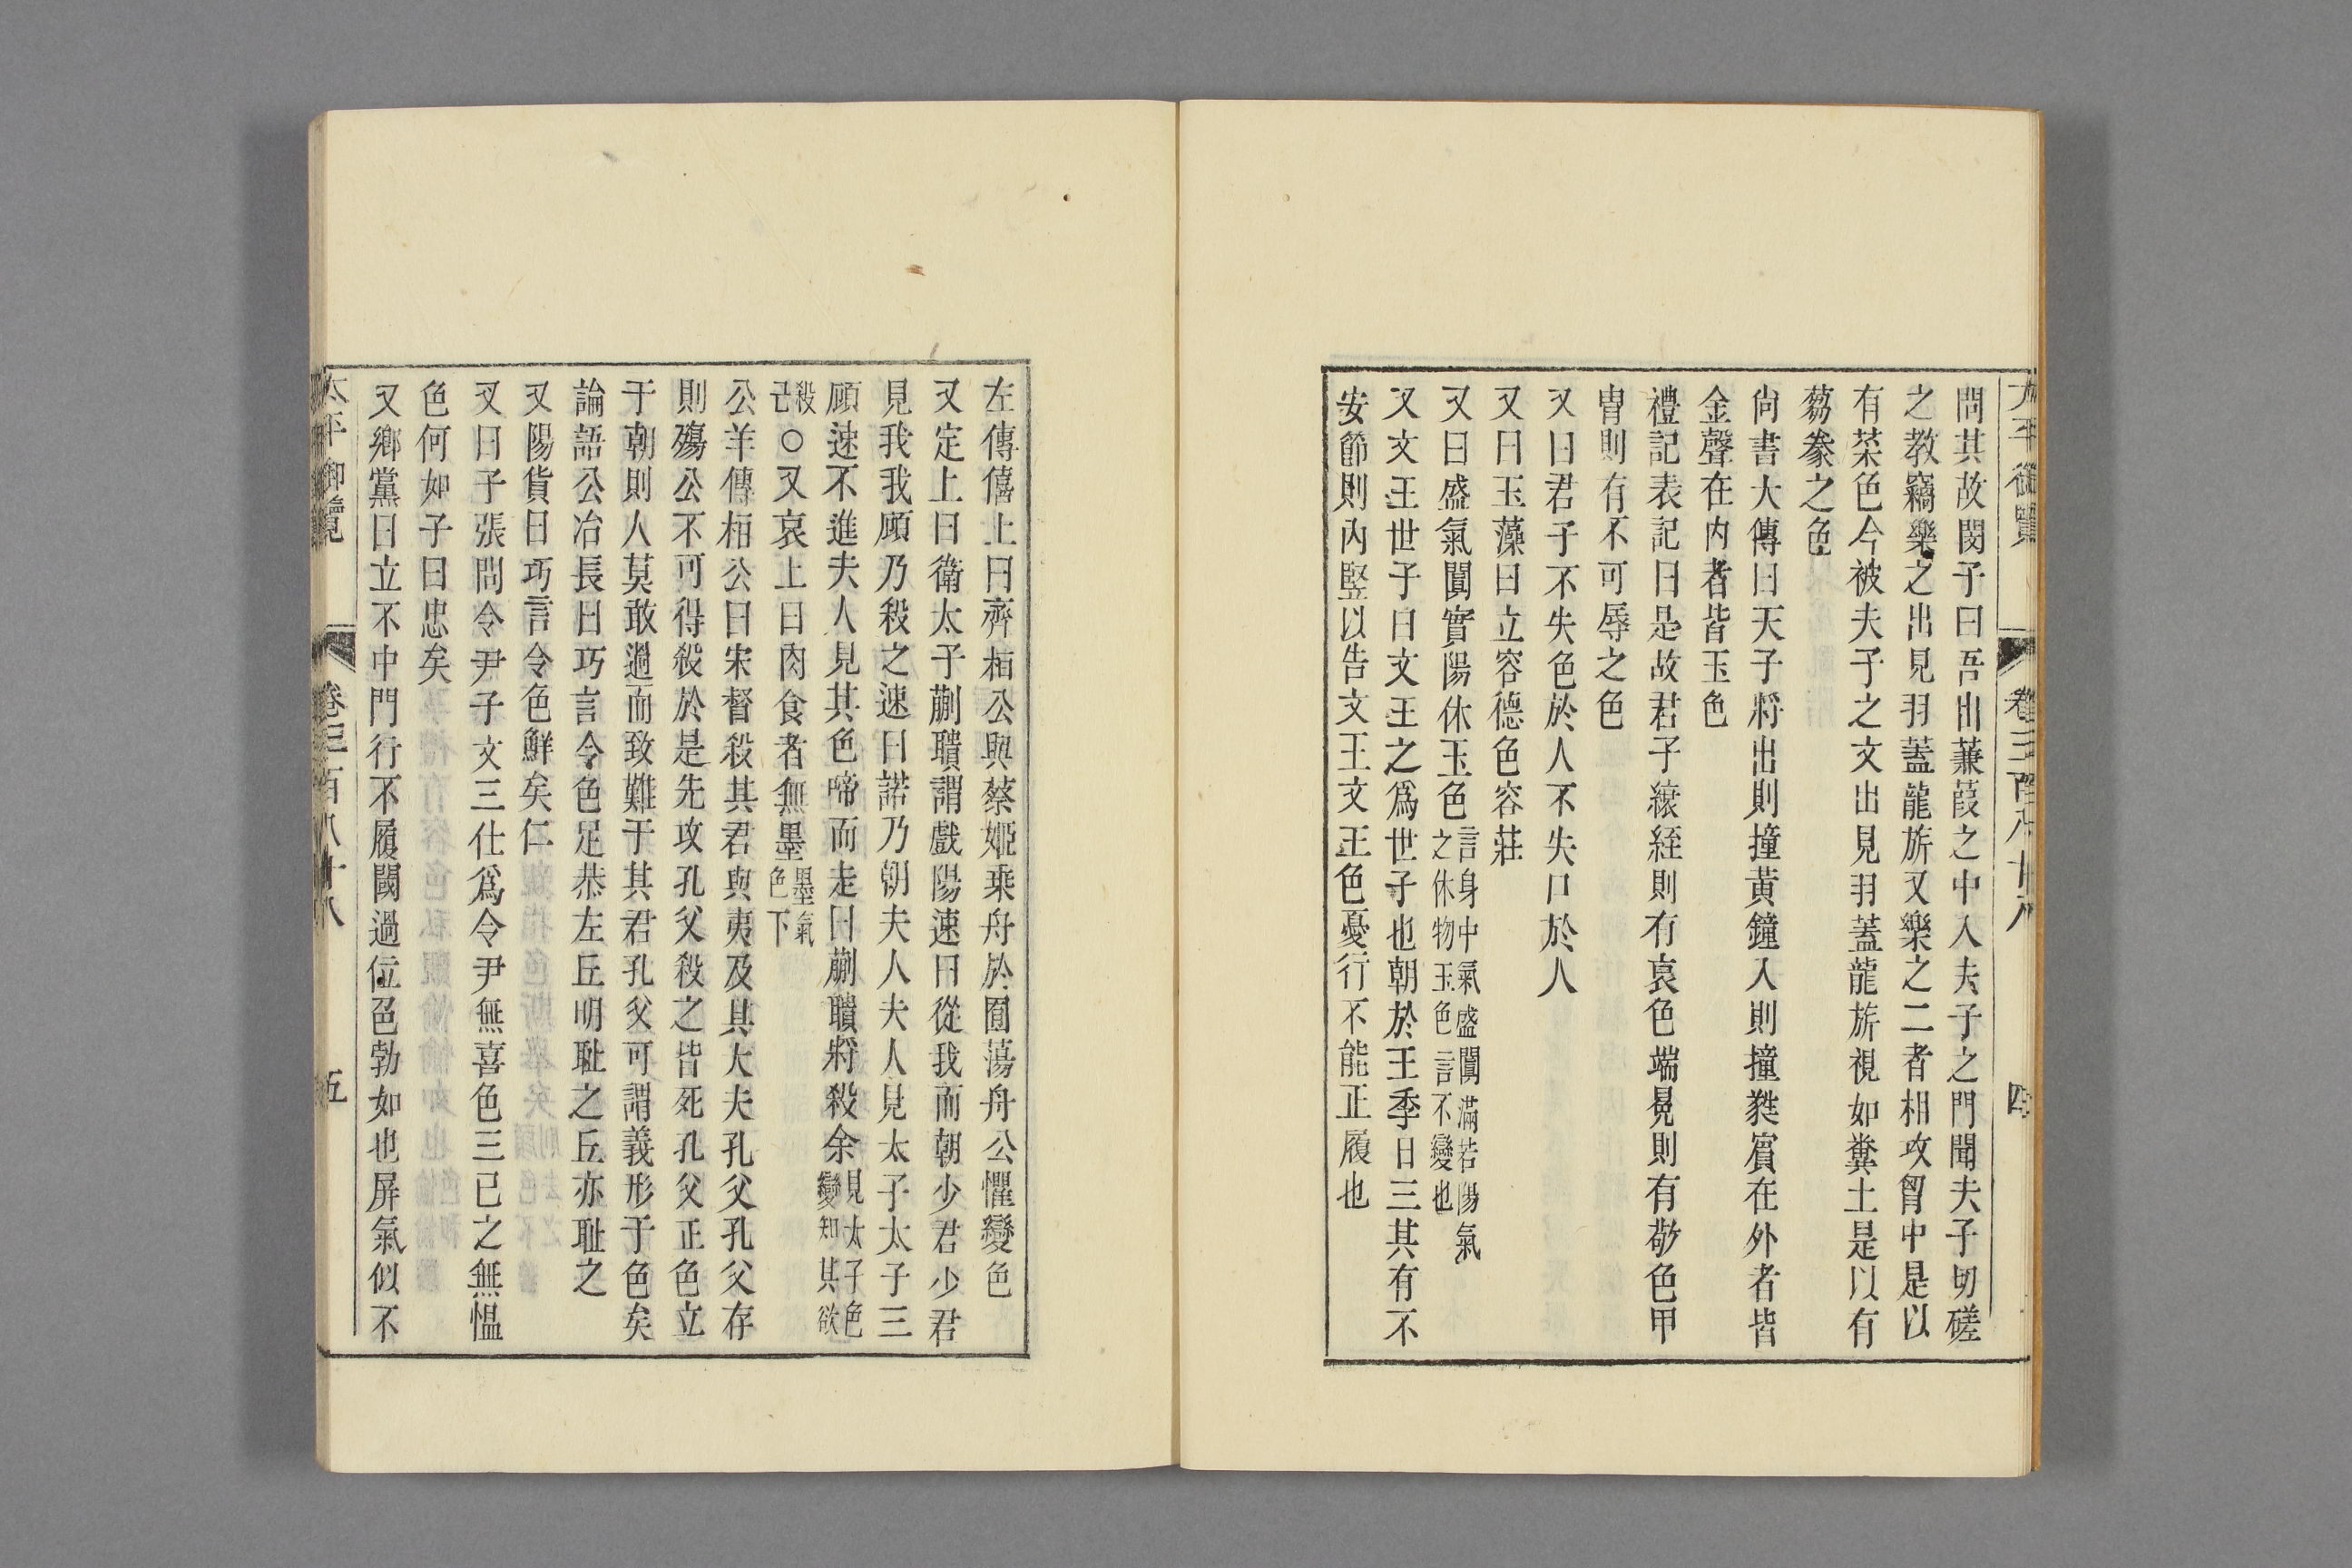 太平御覽 卷三百八十八 四
問其故閔子曰吾出蒹葭之中入夫子之門聞夫子切磋
之教竊樂之出見羽蓋龍旂又樂之二者相攻胷中是以
有菜色今被夫子之文出見羽蓋龍旂視如糞土是以有
蒭豢之色
尙書大傳曰天子將出則撞黃鐘入則撞蕤賔在外者皆
金聲在内者皆玉色
禮記表記曰是故君子縗絰則有哀色端冕則有敬色甲
胄則有不可辱之色
又曰君子不失色於人不失口於人
又曰玉藻曰立容德色容莊
又曰盛氣闐實陽休玉色言身中氣盛闐滿若陽氣之休物玉色言不變也
又文王世子曰文王之爲世子也朝於王季日三其有不
安節則内豎以告文王文王色憂行不能正履也
左傳僖上曰齊栢公與蔡姬乗舟於囿蕩舟公懼變色
又定上曰衛太子蒯聵謂戲陽速曰從我而朝少君少君
見我我顧乃殺之速曰諾乃朝夫人夫人見太子太子三
顧速不進夫人見其色啼而走曰蒯聵將殺余見太子色變知其欲
殺已○又哀上曰肉食者無墨墨氣色下
公羊傳栢公曰宋督殺其君與夷及其大夫孔父孔父存
則殤公不可得殺於是先攻孔父殺之皆死孔父正色立
于朝則人莫敢過而致難于其君孔父可謂義形于色矣
論語公冶長曰巧言令色足恭左丘明耻之丘亦耻之
又陽貨曰巧言令色鮮矣仁
又曰子張問令尹子文三仕爲令尹無喜色三已之無愠
色何如子曰忠矣
又鄉黨曰立不中門行不履閾過位色勃如也屏氣似不
太平御覽 卷三百八十八 五